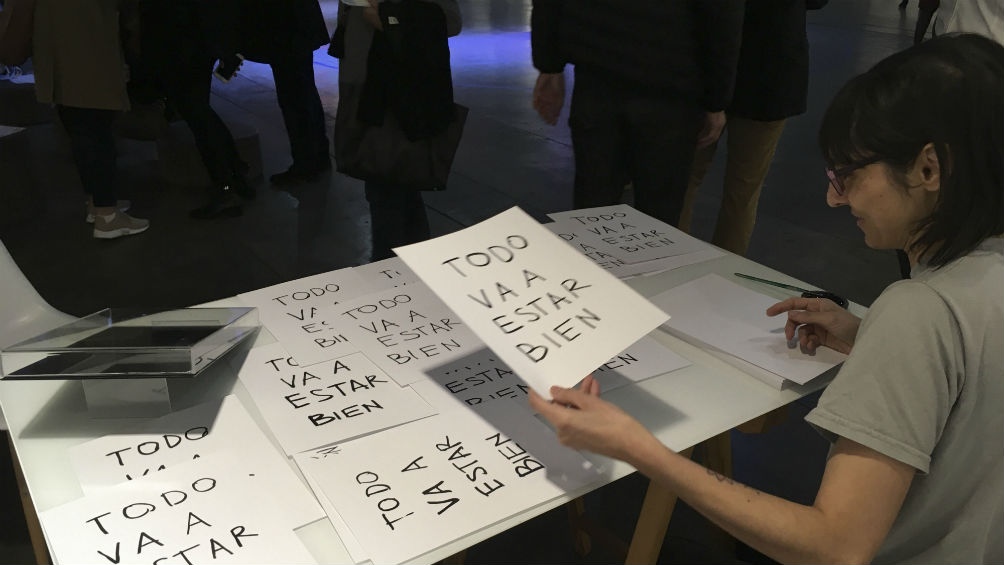 TODO
VA A
ESTAR
BIEN
TODO
VA A
ESTAR
BIEN
TODO
TODO
VA A
ESTAR
BIEN
VA A
ESTAR
BIEN
TODO
VA A
ESTAR
BIEN
ESTAR
BIEN
TODO
TODO
VA A
ESTAR